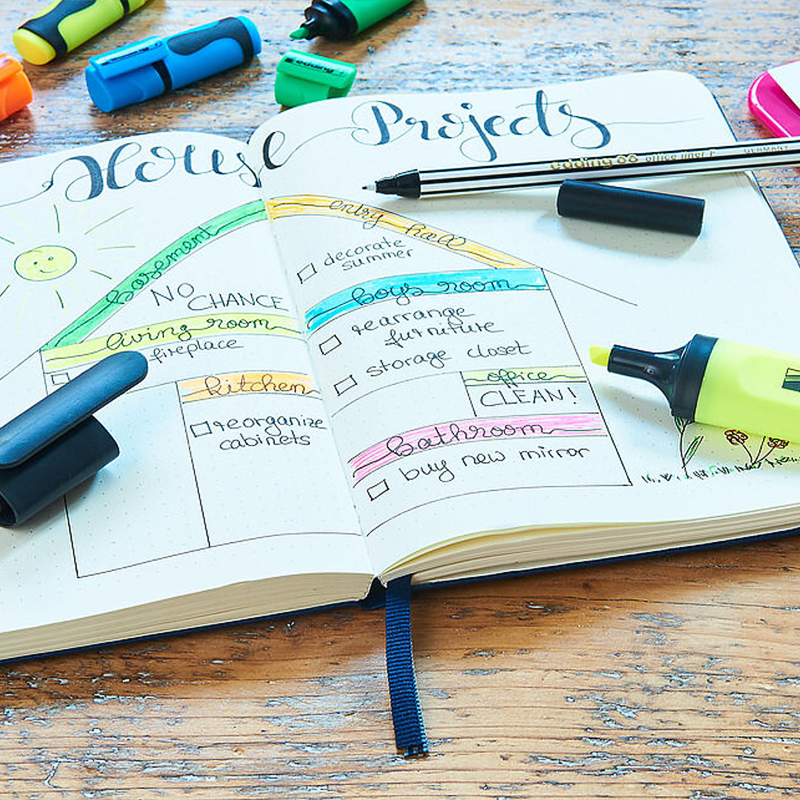 House Projects
basement
NO
CHANCE
living room
fireplace
kitchen
reorganize
cabinets
entry hall
decorate
summer
boys room
rearrange
furniture
storage closet
office
CLEAN!
bathroom
buy new mirror
edding 88 office liner F GERMANY
edding